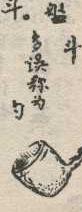 斗。
斗
多误称为
勺